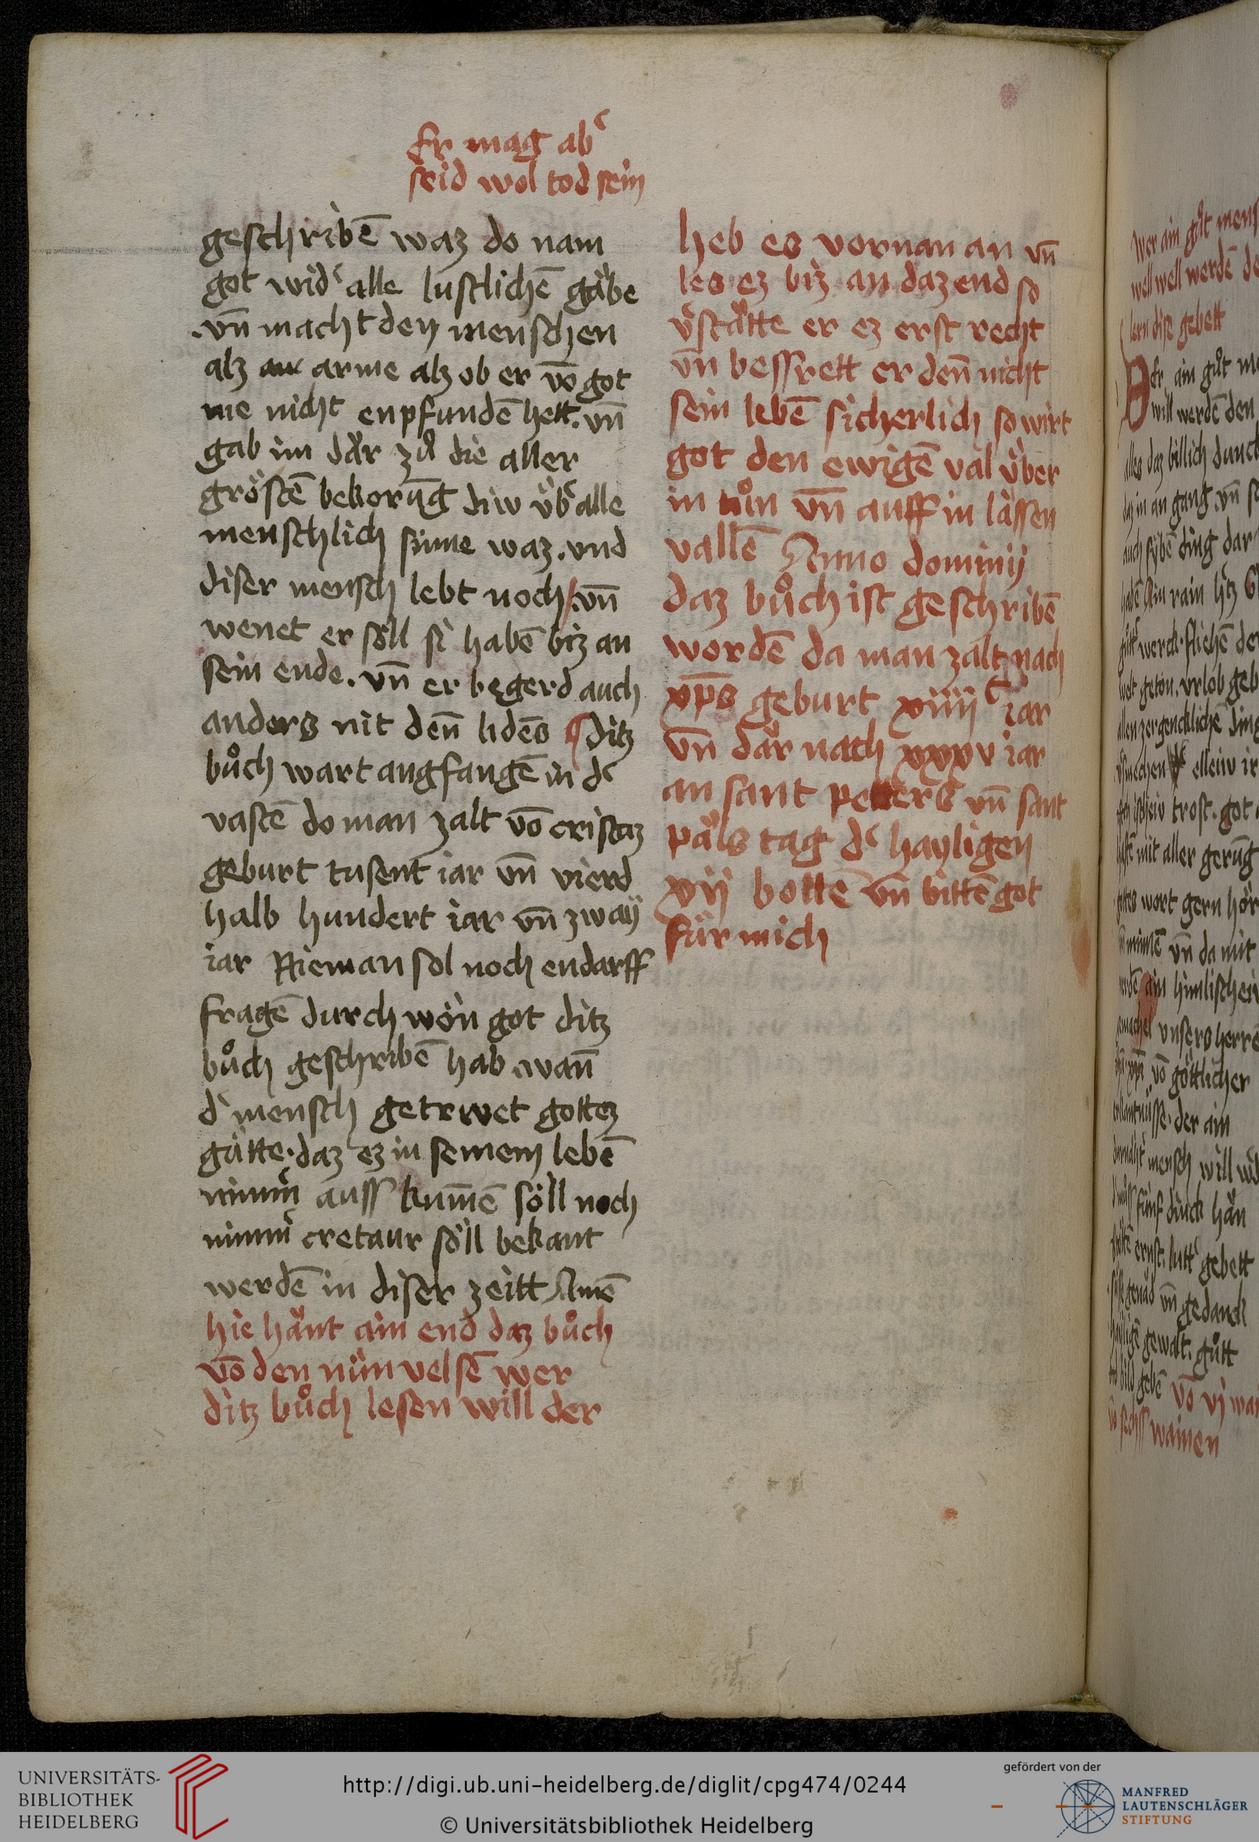 Er mag abˀ
seid wol tod sein
geschribē waz do nam
got widˀ alle lustlichē gäbe
vn̄ macht den menschen
alz arme alz ob er vō got
nie nicht enpfundē hett. vn̄
gab im dar zů die aller
gröstē bekorūg diw übˀ alle
menschlich sinne waz. vnd
diser mensch lebt noch vn̄
wenet er söll si habē biz an
sein ende. vn̄ er begerd auch
anders nit den̄ lidēs ¶ ditz
bůch wart angfangē in dˀ
vastē do man zalt vō cristaz
geburt tusent iar vn̄ vierd
halb hundert iar vn̄ zwaÿ
iar Nieman sol noch endarff
fragē durch wön got ditz
bůch geschribē hab. wan̄
dˀ mensch getrwet gottez
gütte. daz ez in seinem lebē
nimmˀ auss kum̄ē söll noch
nimmˀ cretaur söll bekant
werdē in diser zeitt Amē
hie hänt ain end daz bůch
vō den nün velsē wer
ditz bůch lesen will der
heb es vornan an vn̄
les ez biz an daz end so
vˀstätte er ez erst recht
vn̄ bessrett er den̄ nicht
sein lebē sicherlich so wirt
got den ewigē val über
in tůn vn̄ auff in lässen
vallē Anno dominij
daz bůch ist geschribē
wordē da man zalt nach
xp̄s geburt xiiij c iar
vn̄ dar nach xxxv iar
an sant petters vn̄ sant
päls tag dˀ hayligen
xij bottē vn̄ bittē got
für mich
wer ain gůt mens
well well werdē de
lern dise gebett
Der ain gůt me
will werdē den
alles daz billich dunck
da in an gang. vn̄ s
auch sÿbē ding dar
habē Ain rain
werck. fliehen de
welt geton. vrlob geb
allen zergencklichē ding
elleiw ir
trost. got
mit aller gerūg
gotes wort gern hör
vn̄ da mit
werdē ain himlischen
gemachel vnsers herre
vō göttlicher
der ain
mensch will wˀd
fünf duck hän
ernst. lutt gebett
genad vn̄ gedanck
gewalt. gůtt
bild gebē vō vj war
sechss wainen
UNIVERSITÄTS-
BIBLIOTHEK
HEIDELBERG
http://digi.ub.uni-heidelberg.de/diglit/cpg474/0244
© Universitätsbibliothek Heidelberg
gefördert von der
MANFRED
LAUTENSCHLÄGER
STIFTUNG